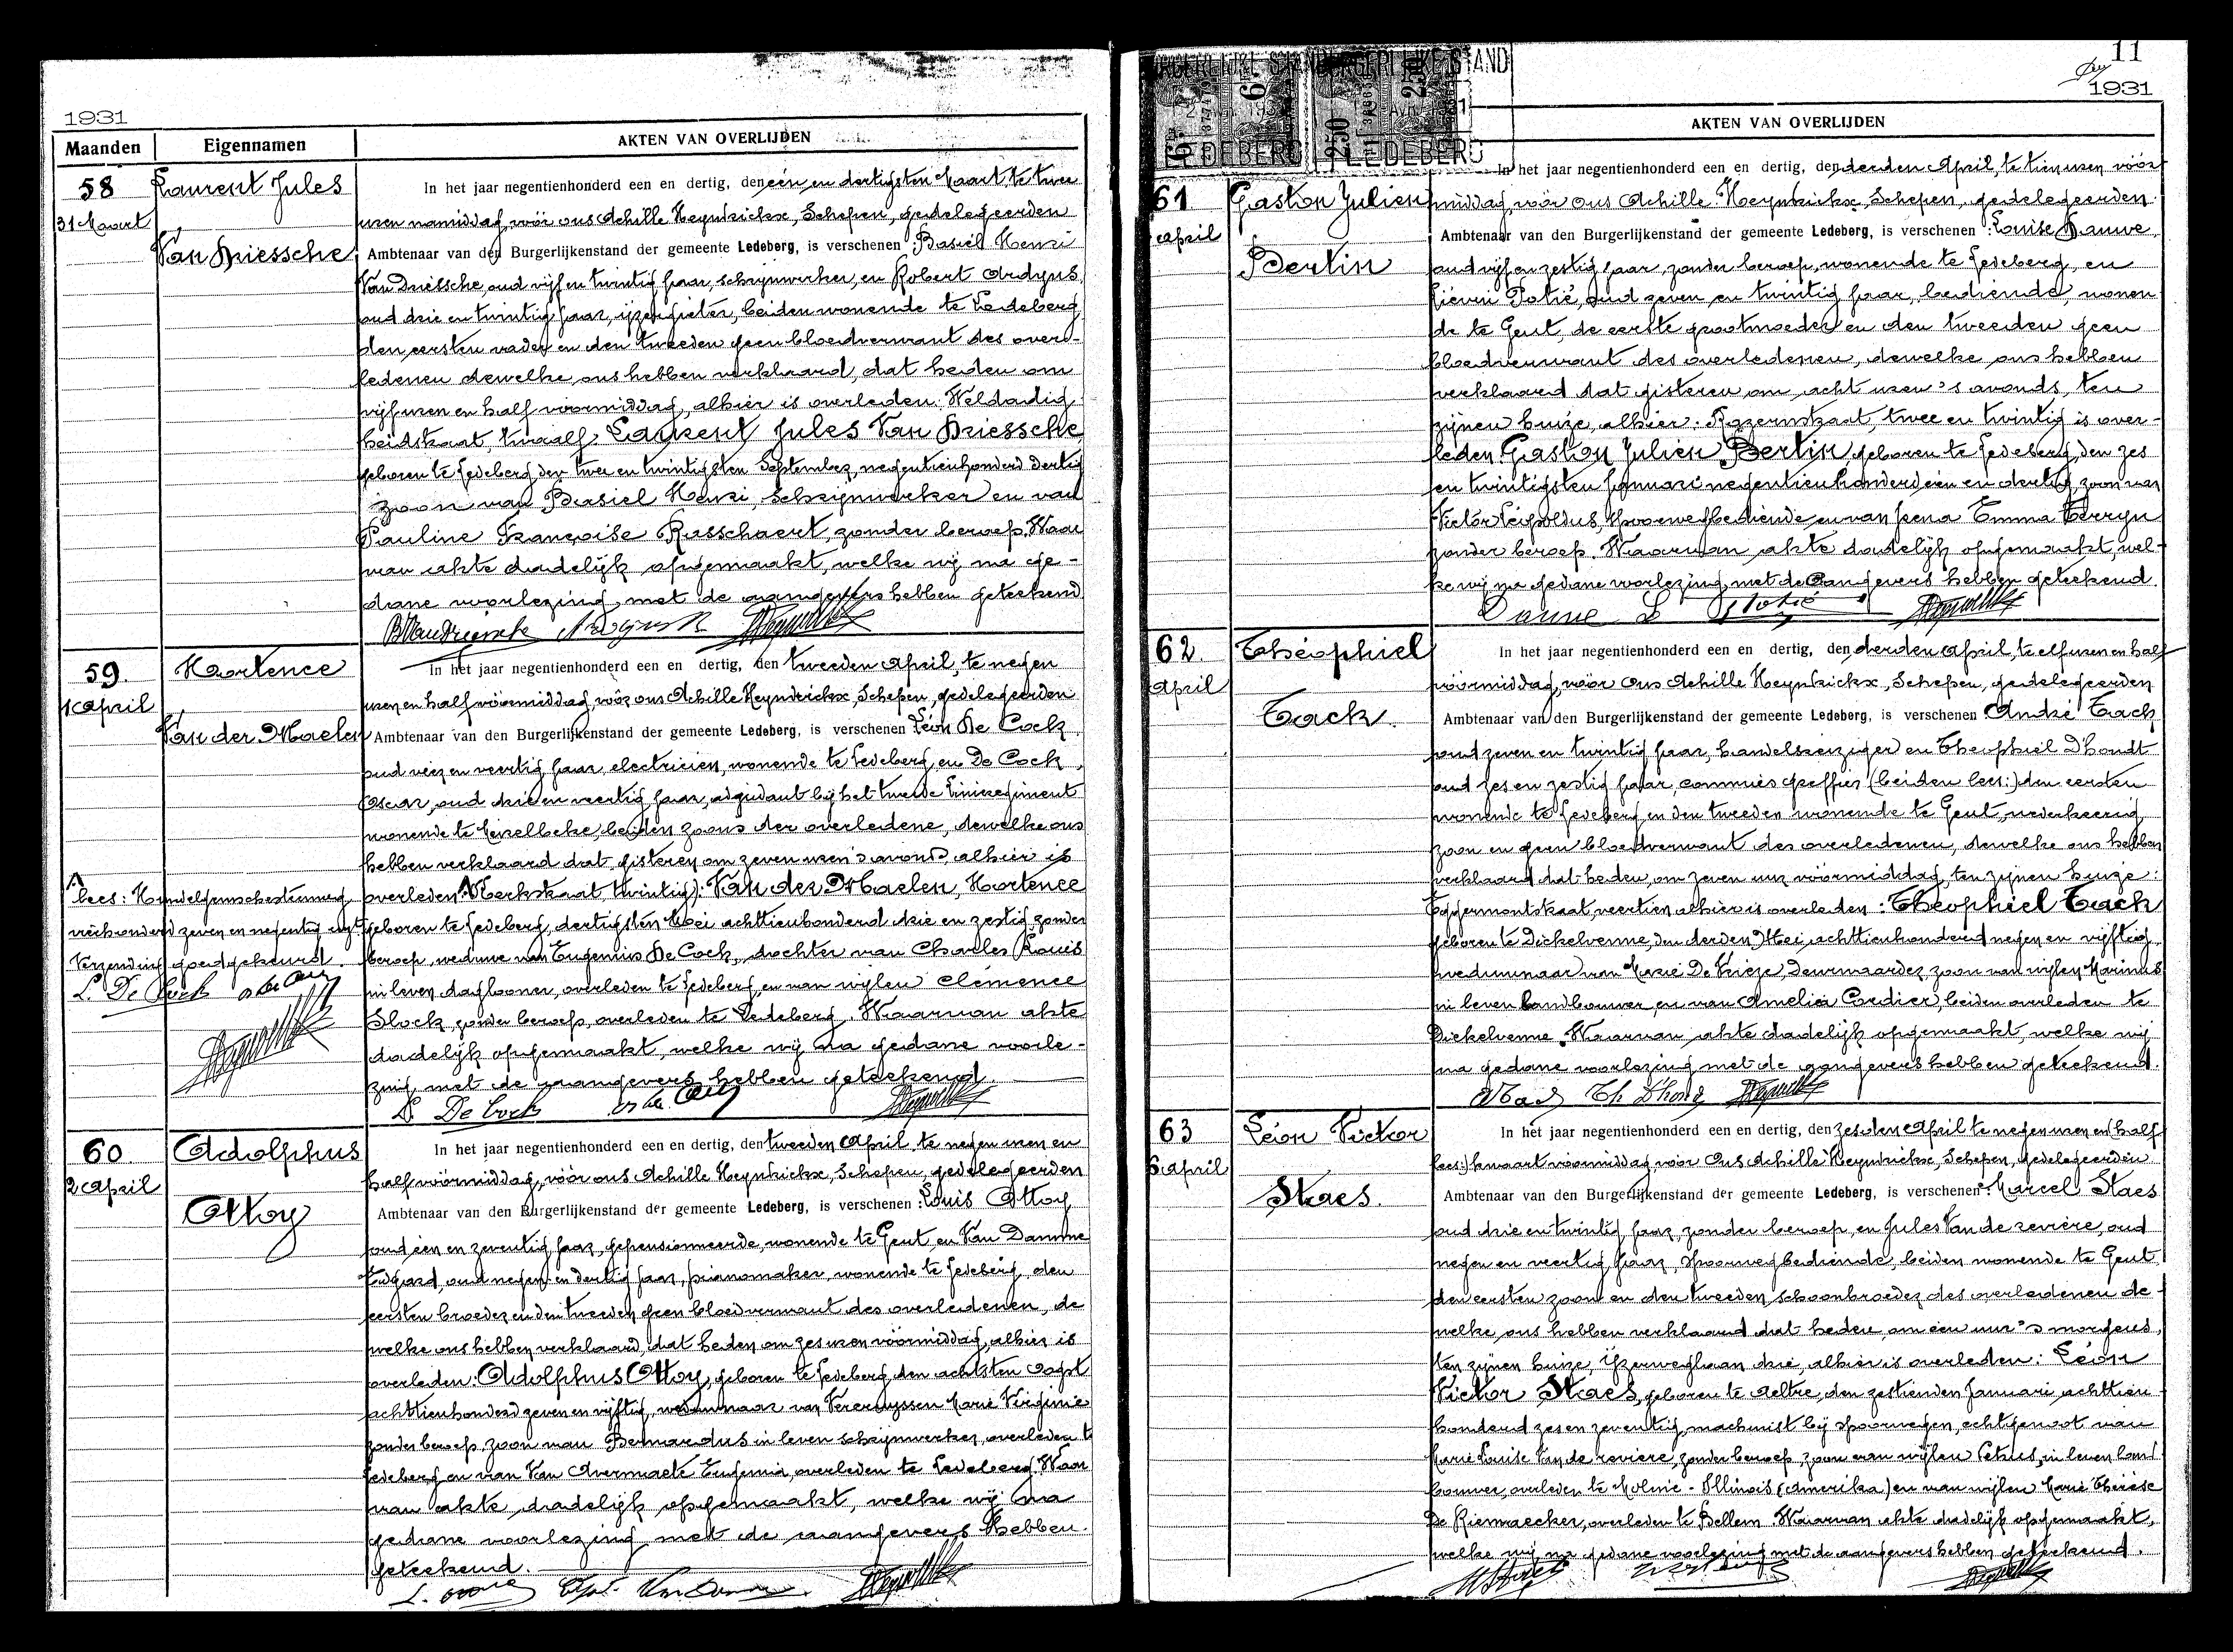 1931
Maanden
Eigennamen
AKTEN VAN OVERLIJDEN
58
Laurent Jules
31 Maart
Van Driessche
In het jaar negentienhonderd een en dertig, den één en dertigsten Maart te twee
uren namiddag, vóór ons Achille Heyndrickx, Schepen, gedelegeerden
Ambtenaar van den Burgerlijkenstand der gemeente Ledeberg, is verschenen : Basiel Henri
Van Driessche, oud vijf en twintig jaar, schrijnwerker, en Robert Ardyns,
oud drie en twintig jaar, ijzergieter, beiden wonende te Ledeberg
den eersten vader en den tweeden geen bloedverwant des over-
ledenen dewelke ons hebben verklaard, dat heden om
vijf uren en half voormiddag, alhier is overleden: Weldadig
heidstraat, twaalf, Laurent Jules Van Driessche
geboren te Ledeberg, den twee en twintigsten September, negentienhonderd dertig
zoon van Basiel Henri, Schrijnwerker en van
Pauline Françoise Russchaert, zonder beroep. Waar
van akte dadelijk opgemaakt, welke wij na ge-
dane voorlezing, met de aangevers hebben geteekend
59.
Hortence
1 April
Van der Maelen
In het jaar negentienhonderd een en dertig, den tweeden April, te negen
uren en half vóórmiddag, vóór ons Achille Heyndrickx, Schepen, gedelegeerden
Ambtenaar van den Burgerlijkenstand der gemeente Ledeberg, is verschenen Léon De Cock
oud vier en veertig jaar, electricien, wonende te Ledeberg, en De Cock,
Oscar, oud drie en veertig jaar, adjudant bij het tweede Linieregiment
wonende te Meirelbeke, beiden zoons der overledene, dewelke ons
hebben verklaard dat gisteren om zeven uren 's avonds alhier is
overleden: (Kerkstraat, twintig): Van der Maelen, Hortence
geboren te Ledeberg, dertigsten Mei achttienhonderd drie en zestig, zonder
beroep, weduwe van Eugenius De Cock, dochter van Charles Louis
in leven daglooner, overleden te Ledeberg, en van wijlen Clémence
Slock, zonder beroep, overleden te Ledeberg. Waarvan akte
dadelijk opgemaakt, welke wij na gedane voorle-
zing, met de aangevers hebben geteekend.
lees: Hundelgemschesteenweg,
vierhonderd zeven en negentig
Verzending goedgekeurd.
L. De Cock
L. De Cock
60.
Adolphus
2 April
Ottoy
In het jaar negentienhonderd een en dertig, den tweeden April, te negen uren en
half vóórmiddag, vóór ons Achille Heyndrickx, Schepen, gedelegeerden
Ambtenaar van den Burgerlijkenstand der gemeente Ledeberg, is verschenen : Louis Ottoy
oud één en zeventig jaar, gepensionneerde, wonende te Gent, en Van Damme
Edgard, oud negen en dertig jaar, pianomaker, wonende te Ledeberg, den
eersten broeder en den tweeden geen bloedverwant des overledenen, de
welke ons hebben verklaard, dat heden om zes uren vóórmiddag, alhier is
overleden: Adolphus Ottoy, geboren te Ledeberg, den achtsten Oogst
achttienhonderd zeven en vijftig, weduwnaar van Vereruyssen Marie Virginie
zonder beroep, zoon van Bernardus in leven schrijnwerker, overleden te
Ledeberg en van Van Avermaete Eugenia, overleden te Ledeberg. Waar
van akte dadelijk opgemaakt, welke wij na
gedane voorlezing met de aangevers hebben.
geteekend.
11
1931
BURGERLIJKE STAND
LEDEBERG
BURGERLIJKE STAND
LEDEBERG
AKTEN VAN OVERLIJDEN
61
Gaston Julien
April
Bertin
In het jaar negentienhonderd een en dertig, den derden April, te tien uren vóór
middag, vóór ons Achille Heyndrickx, Schepen, gedelegeerden
Ambtenaar van den Burgerlijkenstand der gemeente Ledeberg, is verschenen : Louise Dauwe,
oud vijf en zestig jaar, zonder beroep, wonende te Ledeberg, en
Liévin Potié, oud zeven en twintig jaar, bediende, wonen
de te Gent, de eerste grootmoeder en den tweeden geen
bloedverwant des overledenen, dewelke ons hebben
verklaard dat gisteren om acht uren 's avonds, ten
zijnen huize, alhier: Rozernstraat, twee en twintig is over-
leden Gaston Julien Bertin, geboren te Ledeberg, den zes
en twintigsten Januari negentienhonderd één en dertig, zoon van
Victor Leopoldus, spoorwegbediende en van Irena Emma Terryn
zonder beroep. Waarvan akte dadelijk opgemaakt, wel-
ke wij na gedane voorlezing, met de aangevers hebben geteekend.
62.
Théophiel
April
Tack.
In het jaar negentienhonderd een en dertig, den derden April, te elf uren en half
vóórmiddag, vóór ons Achille Heyndrickx, Schepen, gedelegeerden
Ambtenaar van den Burgerlijkenstand der gemeente Ledeberg, is verschenen : André Tack
oud zeven en twintig jaar, handelsreiziger en Theophiel D'hondt
oud zes en zestig jaar, commies greffier (beiden lees:) den eersten
wonende te Ledeberg en den tweeden wonende te Gent, wederkeerig
zoon en geen bloedverwant des overledenen, dewelke ons hebben
verklaard dat heden, om zeven uur vóórmiddag, ten zijnen huize:
Eggermontstraat, veertien alhier is overleden : Theophiel Tack
geboren te Dickelvenne, den derden Mei achttienhonderd negen en vijftig
weduwnaar van Marie De Vrieze, Deurwaarder, zoon van wijlen Marinus
in leven landbouwer, en van Amelia Cordier, beiden overleden te
Dickelvenne. Waarvan akte dadelijk opgemaakt, welke wij
na gedane voorlezing met de aangevers hebben geteekend.
63
Léon Victor
6 April
Staes.
In het jaar negentienhonderd een en dertig, den zesden April te negen uren en (half
lees:) kwaart vóórmiddag vóór Ons Achille Heyndrickx, Schepen, gedelegeerden
Ambtenaar van den Burgerlijkenstand der gemeente Ledeberg, is verschenen : Marcel Staes
oud drie en twintig jaar, zonder beroep, en Jules Van de revière, oud
negen en veertig jaar, spoorwegbediende, beiden wonende te Gent,
den eersten zoon en den tweeden schoonbroeder des overledenen de-
welke ons hebben verklaard dat heden, om één uur 's morgens,
ten zijnen huize, IJzerweglaan drie, alhier is overleden: Léon
Victor Staes, geboren te Aeltre, den zestienden Januari achttien
honderd zes en zeventig, machinist bij spoorwegen, echtgenoot van
Marie Louise Van de reviere, zonder beroep, zoon van wijlen Petrus, in leven land
bouwer, overleden te Molinie - Illinois (Amerika) en van wijlen Marie Thérèse
De Riemaecker, overleden te Bellem. Waarvan akte dadelijk opgemaakt,
welke wij na gedane voorlezing met de aangevers hebben geteekend.